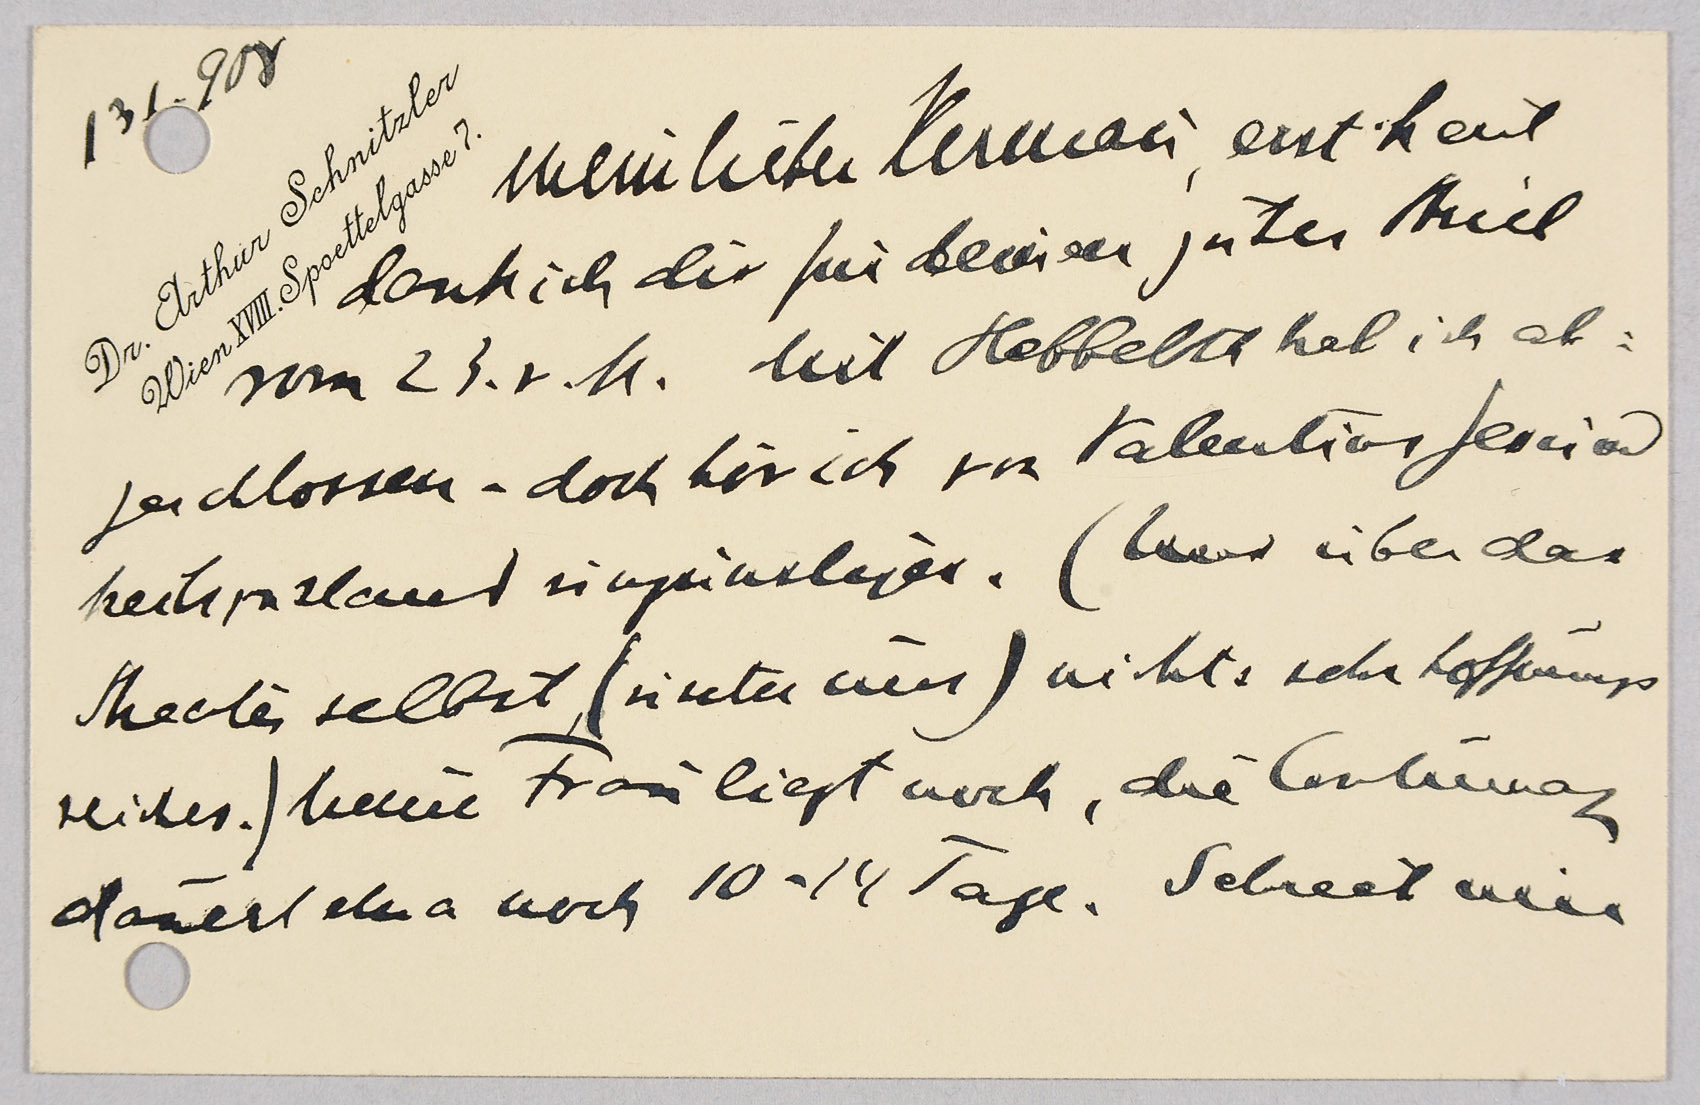 13 1. 908
Dr. Arthur Schnitzler
Wien XVIII. Spoettelgasse 7.
mein lieber Hermann, erst heut
dank ich dir für deinen guten Brief
vom 23. v. M. Mit Hebbelth hab ich ab-
geschlossen – doch hör ich von Valentins Gesund
heitszustand ungünstiges. (Auch über das
Theater selbst, (unter uns) nichts sehr hoffnungs
reiches.) Meine Frau liegt noch, die Contumaz
dauert etwa noch 10–14 Tage. Schreib mir